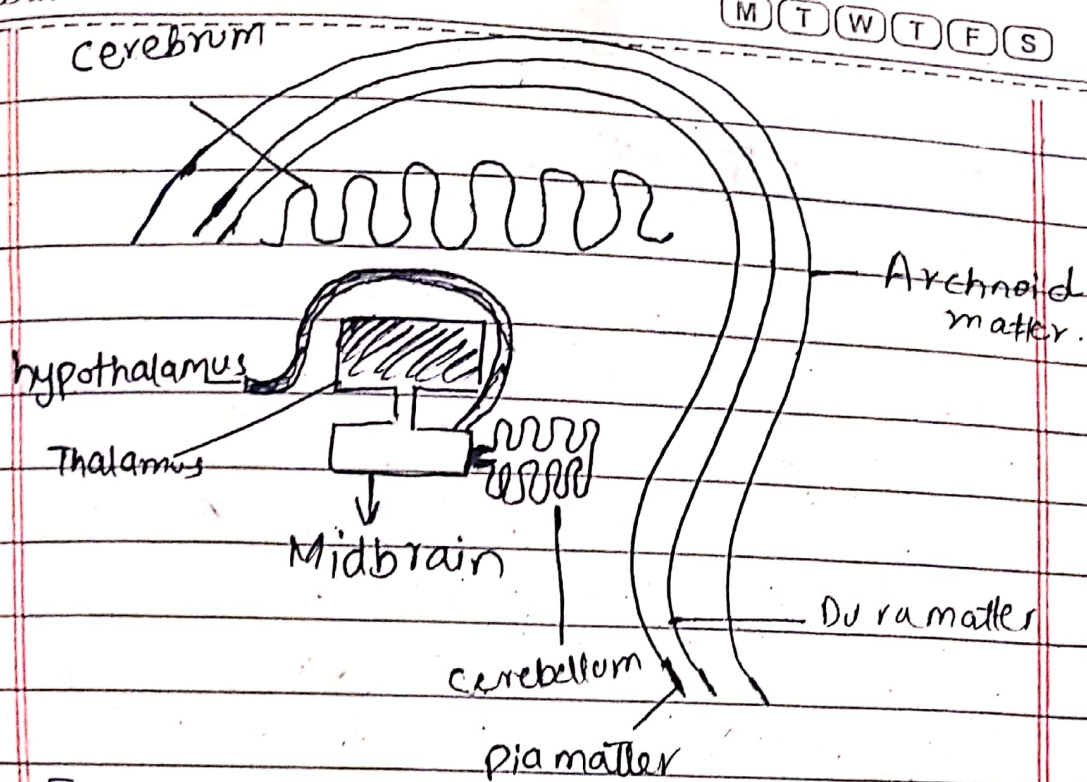 M T W T F S
cerebrum
Archnoid
matter.
hypothalamus
Thalamus
Midbrain
Duramatter
cerebellum
piamatter